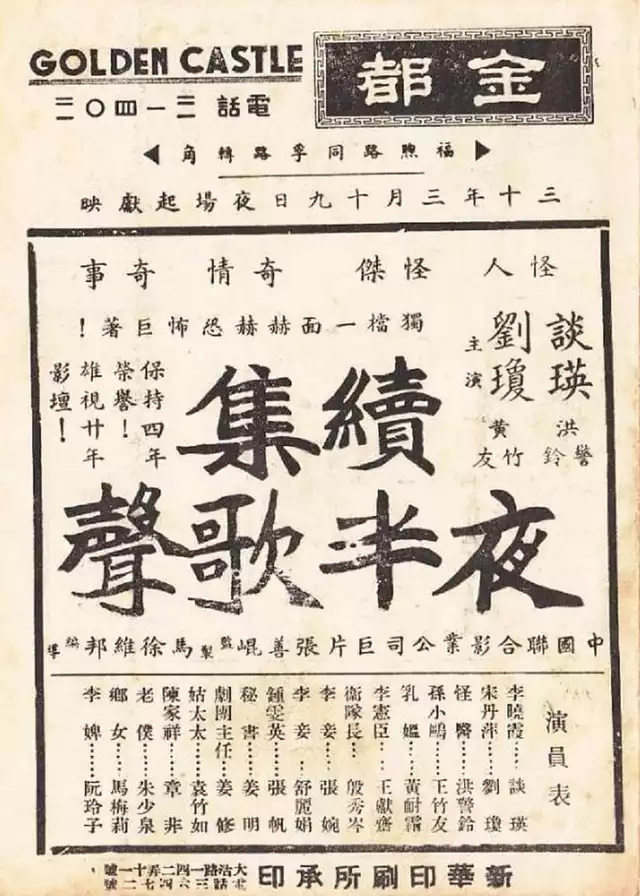 GOLDEN CASTLE
金都
電話
福煦路同孚路轉角
三十年三月十九日夜場起獻映
怪人 怪傑 奇情 奇事
獨檔一面赫赫恐怖巨著！
談瑛 洪警鈴
劉瓊 黃竹友
主演
保持四年
榮譽！
雄視廿年
影壇！
續集
夜半歌聲
中國聯合影業公司巨片張善崐監製馬徐維邦編導
演員表
李曉霞……談瑛
宋丹萍……劉瓊
怪醫……洪警鈴
孫小鷗……王竹友
乳媼……黃耐霜
李憲臣……王獻齋
衛隊長……殷秀岑
李妾……張婉
李妾……舒麗娟
鍾雯英……張帆
秘書……姜明
劇團主任……姜修
姑太太……袁竹如
陳家祥……章非
老僕……朱少泉
鄉女……馬梅莉
李婢……阮玲子
新華印刷所承印